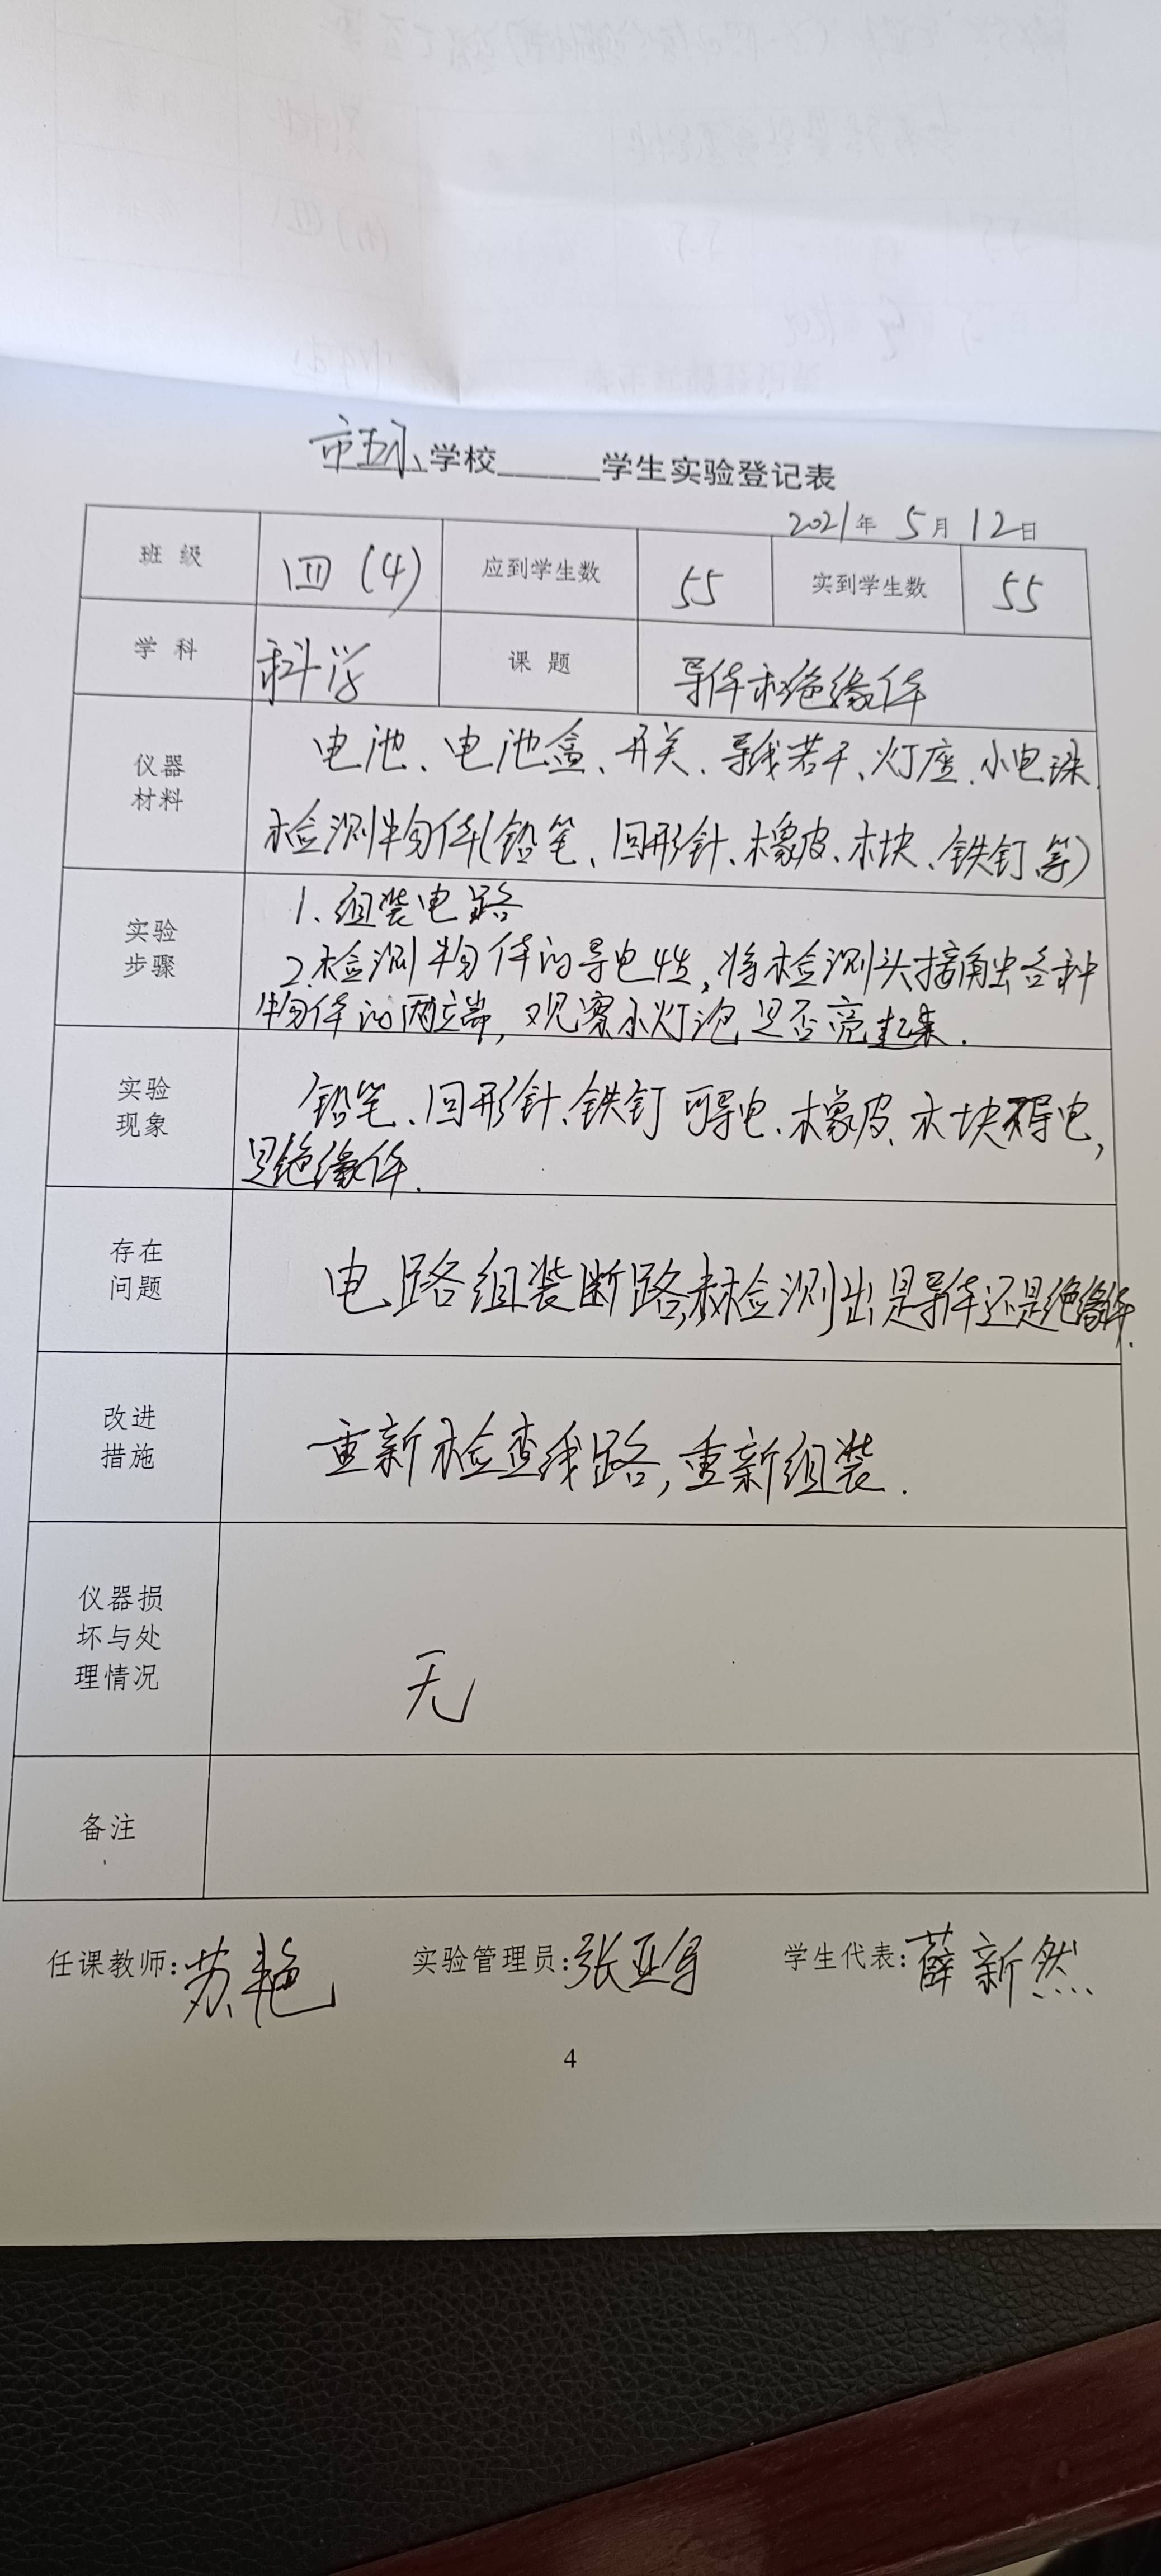 市五小学校______学生实验登记表
2021年 5月 12日
班 级 四(4) 应到学生数 55 实到学生数 55
学 科 科学 课 题 导体和绝缘体
仪器
材料
电池、电池盒、开关、导线若干、灯座、小电珠、
检测物体(铅笔、回形针、橡皮、木块、铁钉等)
实验
步骤
1、组装电路
2、检测物体的导电性,将检测头接触各种
物体的两端,观察小灯泡是否亮起来.
实验
现象
铅笔、回形针、铁钉可导电、橡皮、木块不导电,
是绝缘体.
存在
问题
电路组装断路,未检测出是导体还是绝缘体.
改进
措施
重新检查线路,重新组装.
仪器损
坏与处
理情况
无
备注
任课教师:苏艳 实验管理员:张亚 学生代表:薛新然
4